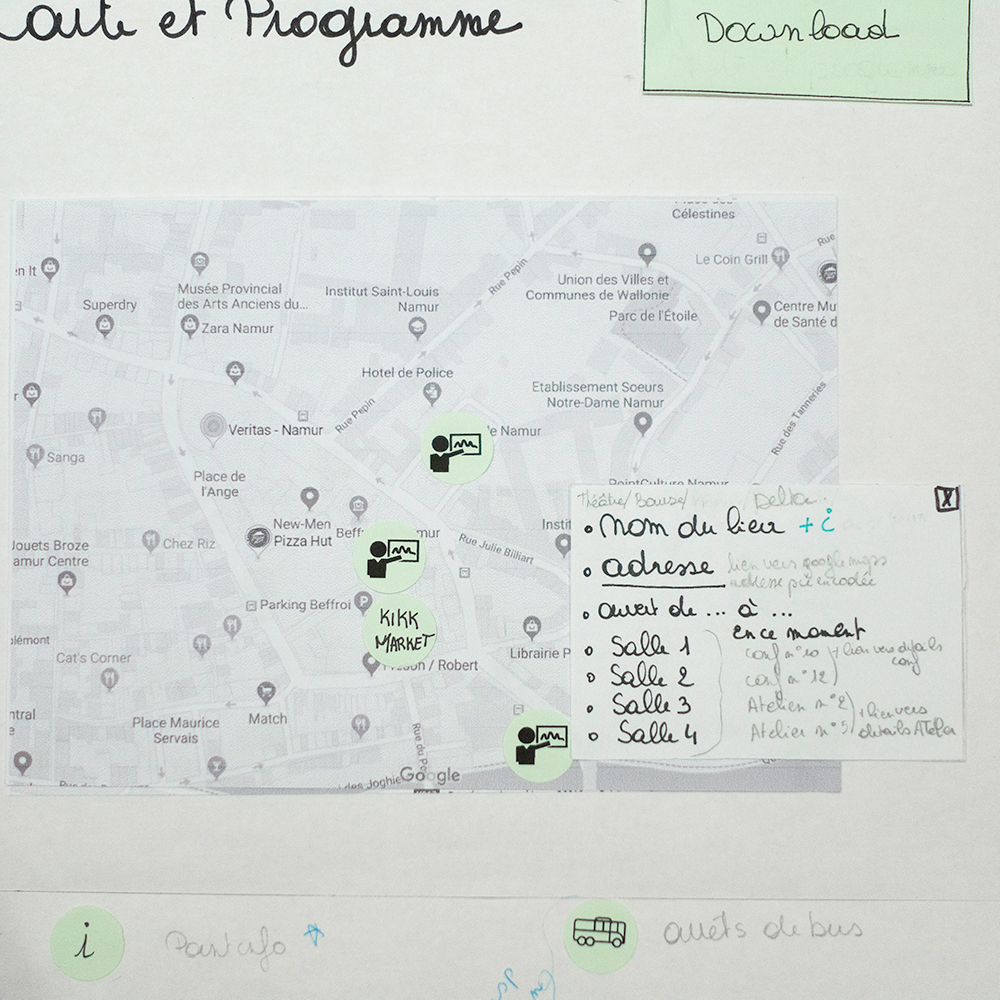 Carte et Programme
Download
Place des
Célestines
Rue
Le Coin Grill
en It
Rue Pepin
Union des Villes et
Communes de Wallonie
Musée Provincial
des Arts Anciens du...
Institut Saint-Louis
Namur
Superdry
Centre Mu
de Santé d
Parc de l'Étoile
Zara Namur
Hotel de Police
Etablissement Soeurs
Notre-Dame Namur
Rue Pepin
Rue des Tanneries
Veritas - Namur
de Namur
Sanga
Place de
l'Ange
PointCulture Namur
New-Men
Pizza Hut
Beff
mur
Instit
Rue Julie Billiart
Jouets Broze
amur Centre
Chez Riz
Parking Beffroi
P
KIKK
MARKET
plémont
Cat's Corner
/ Robert
Librairie P
Match
ntral
Place Maurice
Servais
Rue du Po
des Joghie
Google
Théâtre/Bourse/ /Delta
X
nom du lieu + i
adresse lien vers google maps
adresse pré encodée
ouvert de ... à ...
en ce moment
Salle 1 conf n°10 + lien vers détails
conf
Salle 2 conf n°12
Salle 3 Atelier n°2 + lien vers
Salle 4 Atelier n°5 détails Atelier
i
Point info
arrêts de bus